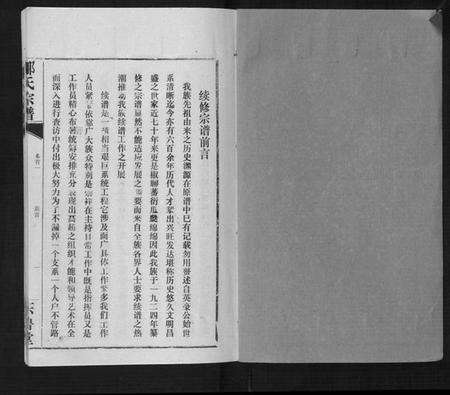 续修宗谱前言
我族先祖由来之历史渊源在原谱中已有记载勿用赘述自英公始世
系清晰迄今亦有六百余年历代人才辈出兴旺发达堪称历史悠久文明昌
盛之世家近七十年来更是椒聊蕃衍瓜瓞绵绵因此我族于一九二四年纂
修之宗谱显然不能适应发展之要而来自全族各界人士要求续谱之热
潮推动我族续谱工作之开展
续谱是一项相当艰巨系统工程它涉及面广具体工作繁多我们工作
人员紧依靠广大族众特别是宗祥在主持日常工作中既是指挥员又是
工作员精心布署统筹安排充分表现出高超之组织才能和领导艺术在全
面深入进行查访中付出极大努力为了不漏掉一个支系一个人户不管路
氏宗谱
卷首
前言
一
堂